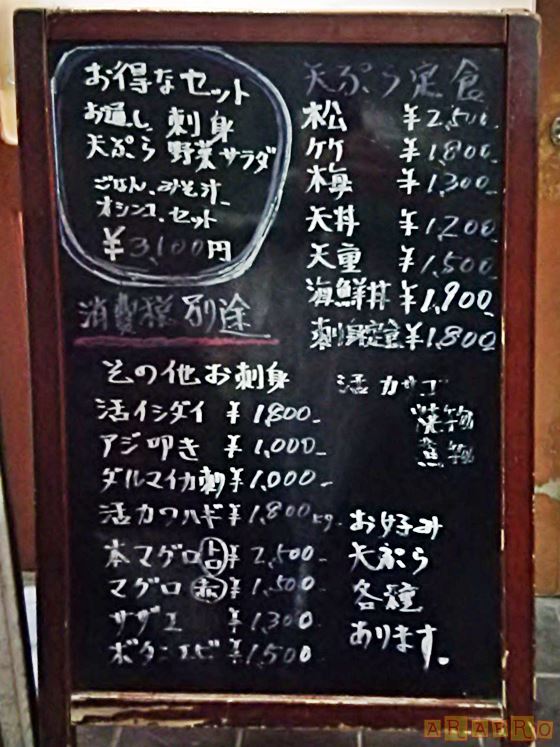 お得なセット
お通し 刺身
天ぷら 野菜サラダ
ごはん、みそ汁
オシンコ、セット
¥3,100円
消費税別途
天ぷら定食
松 ¥2,500
竹 ¥1,800
梅 ¥1,300
天丼 ¥1,200
天重 ¥1,500
海鮮丼 ¥1,900
刺身定食 ¥1,800
その他お刺身
活イシダイ ¥1,800-
アジ叩き ¥1,000-
ダルマイカ刺 ¥1,000-
活カワハギ ¥1,800
本マグロ トロ ¥2,500-
マグロ 赤 ¥1,500
サザエ ¥1,300
ボタンエビ ¥1,500
活 カサゴ
煮物
お好み
天ぷら
各種
あります。
ARABRO